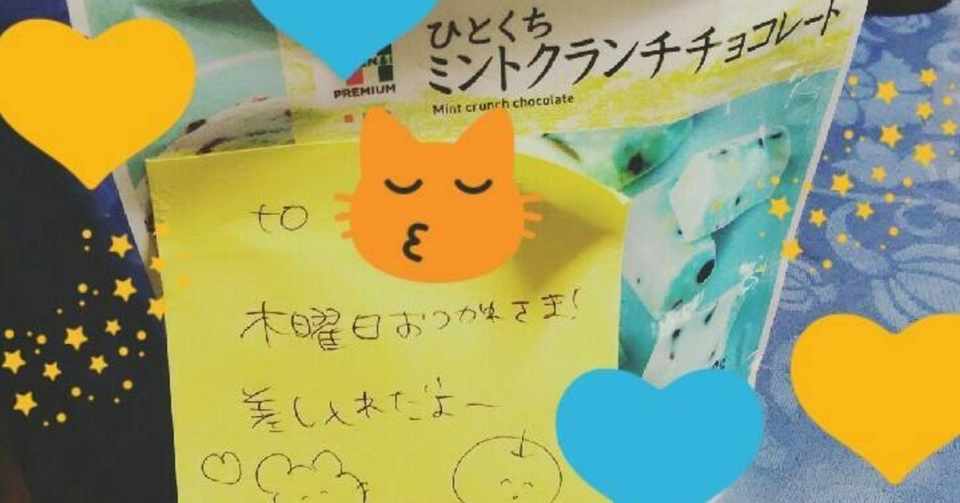 ひとくち
ミントクランチチョコレート
PREMIUM
Mint crunch chocolate
to
木曜日おつかれさま!
差し入れだよー